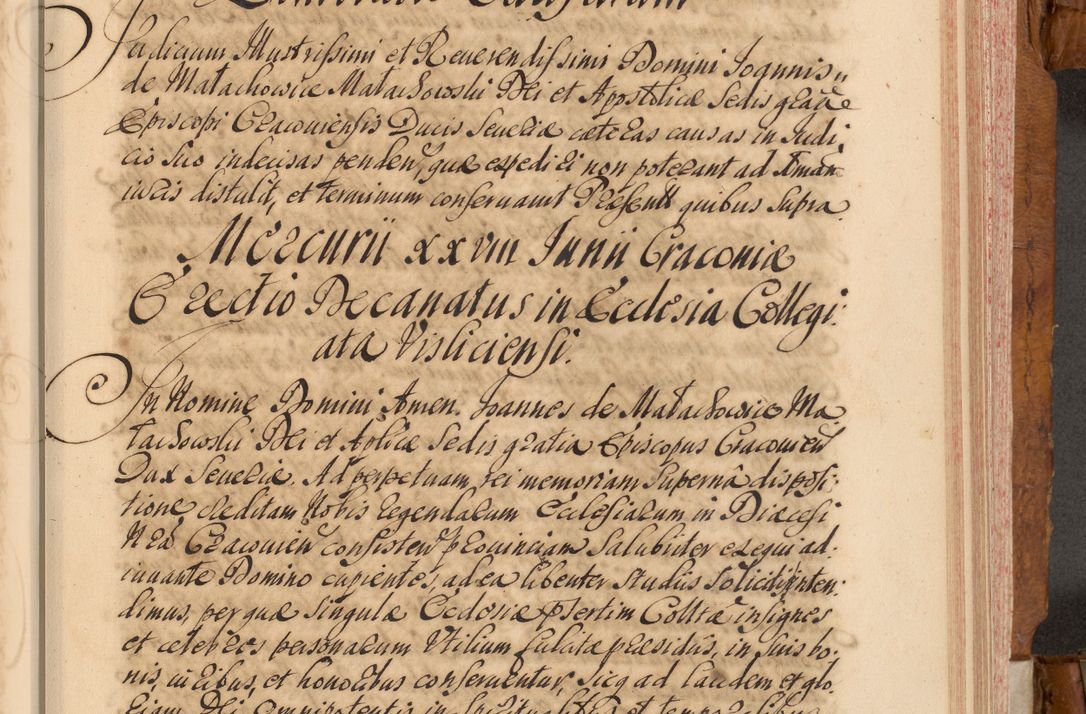 Judicium Illustrissimi et Reverendissimi Domini Joannis
de Małachowice Małachowski Dei et Apostolicæ Sedis gratiæ
Episcopi Cracoviensis Ducis Severiæ cæteras causas in Judi,
cio Suo indecisas penden, quæ expediri non poterant ad
distulit, et terminum conservavit Præsentt quibus Supra.
Mercurii xxviii Junii Cracoviæ
Erectio Decanatus in Ecclesia Collegi:
ata Visliciensi.
In Nomine Domini Amen. Joannes de Małachowice Ma
łachowski Dei et Aplicæ Sedis gratia Episcopus Cracovien
Dux Severiæ. Ad perpetuam rei memoriam Supernâ disposi:
tione creditam Nobis regendarum Ecclesiarum in Diæcesi
Nra Cracovien consisten provinciam Salubriter exequi ad:
iuvante Domino cupientes, ad ea libenter Studiis Solicitis inten:
dimus, per quæ Singulæ Ecclesiæ præsertim Colltæ insignes
et celebres personarum Utilium fulcitæ præsidiis, in Suis bo:
nis, iuribus, et honoribus conserventur, Sicq ad laudem et glo:
riam Dei Omnipotentis in Spiritualibus et temporalibus